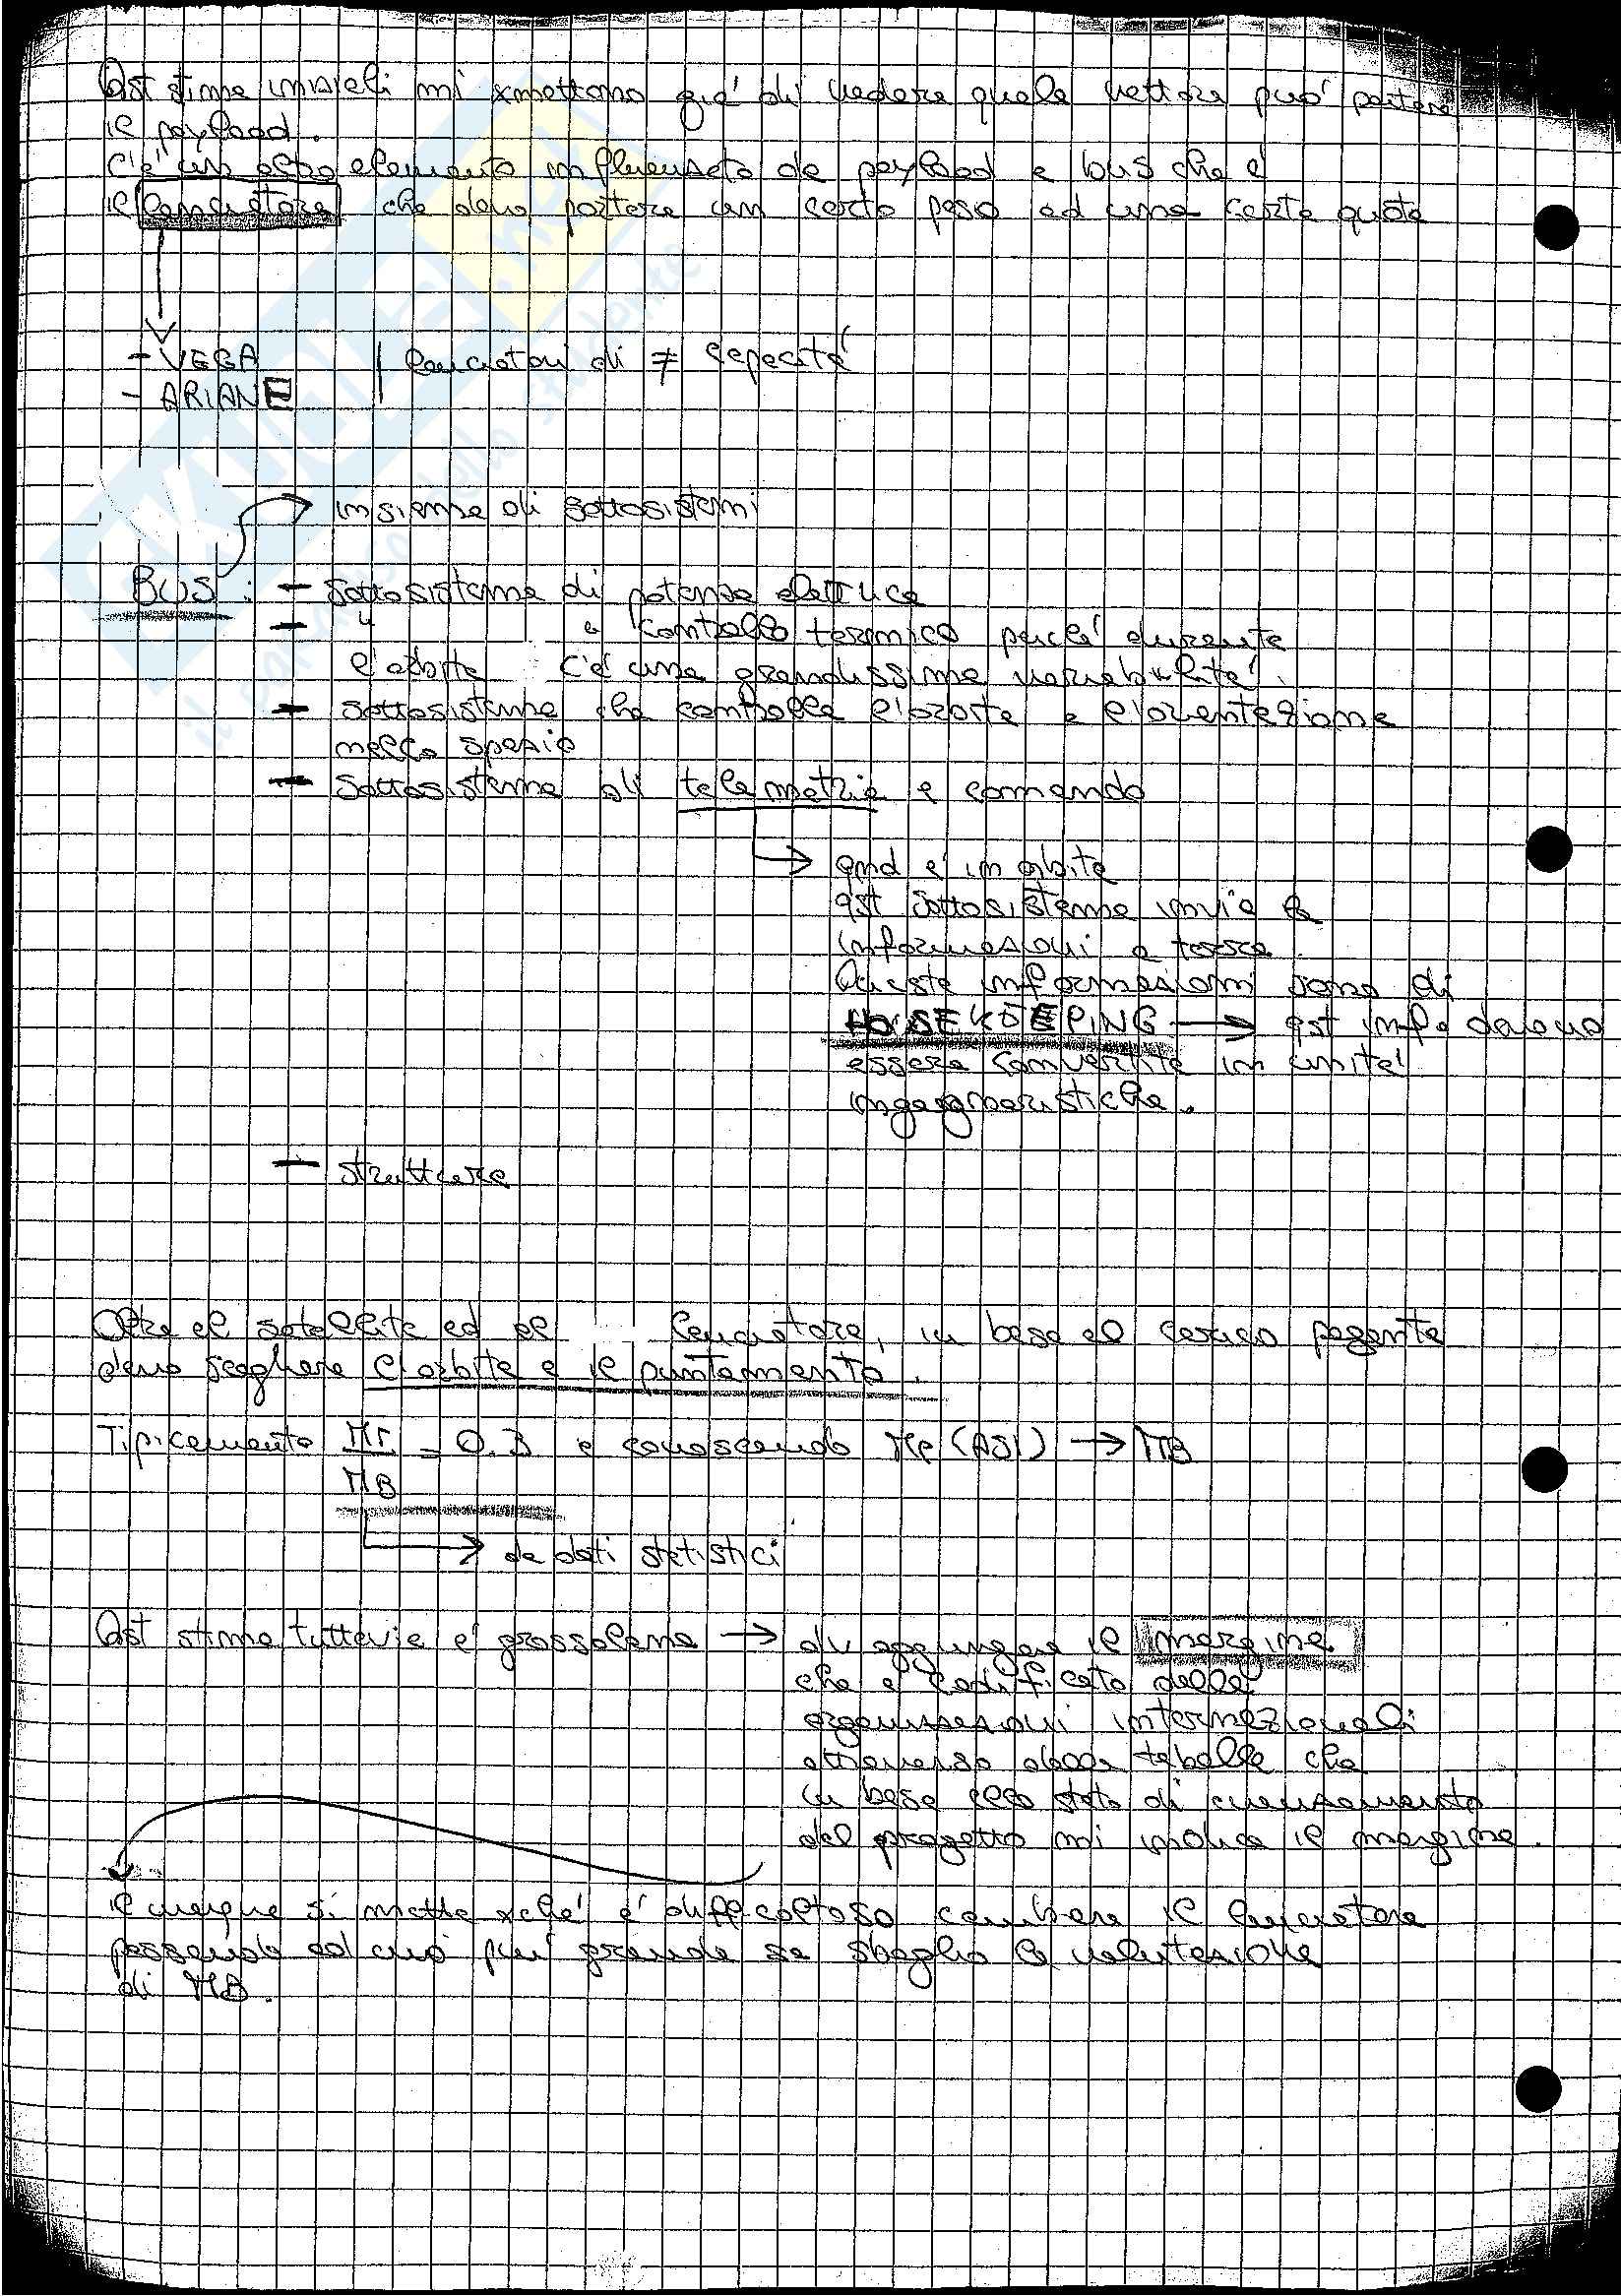 Qst stime iniziali mi xmettono già di vedere quale vettore può portare
il payload.
C'è un altro elemento influenzato da payload e bus che è
il lanciatore che deve portare un certo peso ad una certa quota
- VEGA
- ARIANE
lanciatori di ≠ capacità
insieme di sottosistemi
BUS : - sottosistema di potenza elettrica
- " " controllo termico perché durante
l'orbita c'è una grandissima variabilità.
- sottosistema che controlla l'orbita e l'orientazione
nello spazio
- sottosistema di telemetria e comando
→ qnd è in orbita
qst sottosistema invia le
informazioni a terra.
Queste informazioni sono di
HOUSEKEEPING → qst info devono
essere convertite in unità
ingegneristiche.
- struttura
Oltre al satellite ed al lanciatore, in base al carico pagante
devo scegliere l'orbita e il puntamento.
Tipicamente MP/MB = 0.3 e conoscendo MP (ASI) → MB
→ da dati statistici
Qst stima tuttavia è grossolana → dv aggiungere il margine
che è codificato dalle
organizzazioni internazionali
attraverso delle tabelle che
in base allo stato di avanzamento
del progetto mi indica il margine.
il margine si mette xché è difficoltoso cambiare il lanciatore
passando ad uno più grande se sbaglio la valutazione
di MB.
il paradiso dello studente